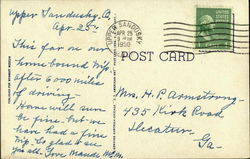 Upper Sandusky, O.
Apr. 25th
This far on our
home bound trip
after 6000 miles
of driving.
Home will sure
be fine, but we
have had a fine
trip. So glad to see
you all. Love
UPPER SANDUSKY
APR 25
9 AM
1950
POST CARD
Mrs. H. P. Armstrong
435 Kirk Road
Decatur,
Ga.